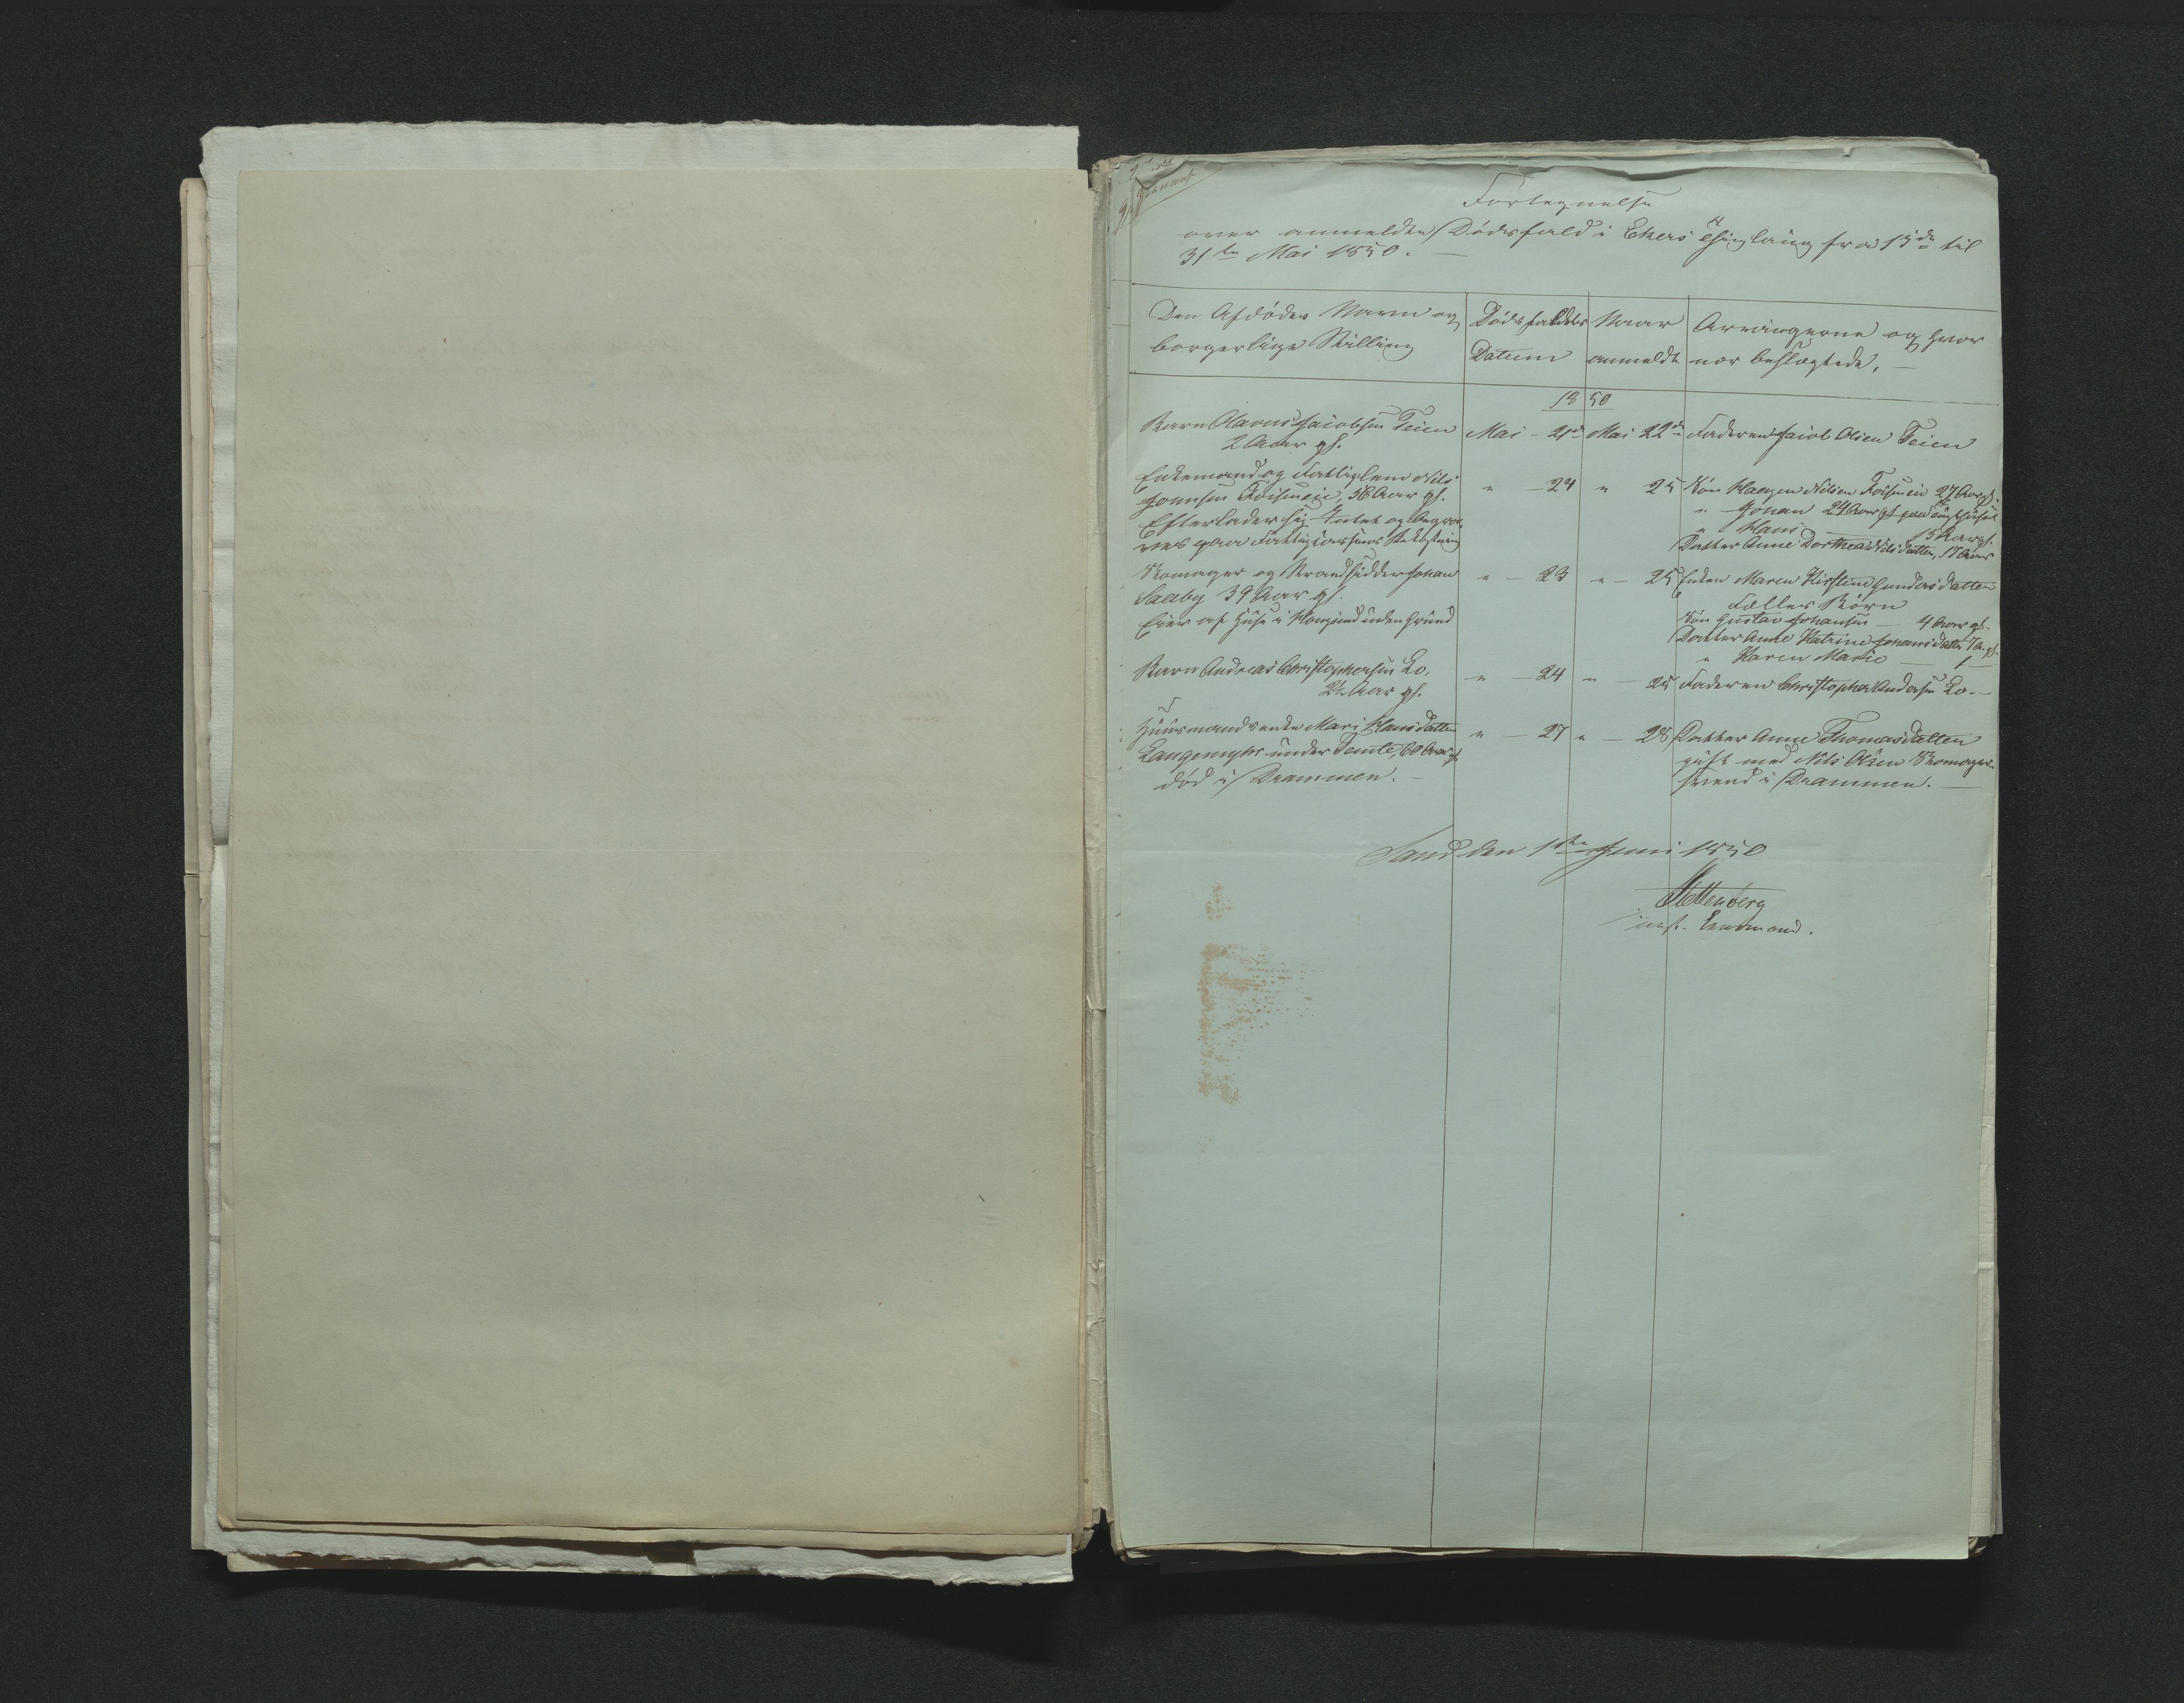 Fortegnelse
over anmeldte Dødsfald i Ekers Thinglaug fra 15de til
31te Mai 1850.
Den Afdødes Navn og borgerlige Stilling
Dødsfaldets Datum
Naar anmeldt
Arvingerne og hvor nær beslægtede.
1850
Barn Jacobsen Teien Mai - 21de Mai 22de Faderen Jacob Olsen Teien
2 Aar gl.
Enkemand og Fattiglem Nils
Johnsen 56 Aar gl. " - 24 " 25 Søn Haagen Nilsen 27 Aar gl.
" Johan 24 Aar gl.
Efterlader sig Intet og begra-
" Hans 15 Aar gl.
ves paa Fattigkassens Bekostning
Datter Anne Dorthea Nilsdatter, 17 Aar
Skomager og Strandsidder Johan " - 23 " - 25 Enken Maren Kirstine Gundersdatter
Saaby 39 Aar gl.
Fælles Børn
Eier af Huse i Krogsund uden Grund
Søn Gustav Johansen — 4 Aar gl.
Datter Anne Katrine Johansdatter 7 A. gl.
" Karen Marie — 1 —
Barn Andreas Christophersen Lo, " - 24 " - 25 Faderen Christopher Andersen Lo. —
2½ Aar gl.
Huusmandsenke Mari Hansdatter " - 27 " - 28 Datter Anne Thomasdatter
Langemyhr under Temte, 60 Aar gl.
gift med Nils Olsen Skomager-
død i Drammen. —
svend i Drammen. —
Sand den 1ste Juni 1850
Stettenberg
const. Lensmand.